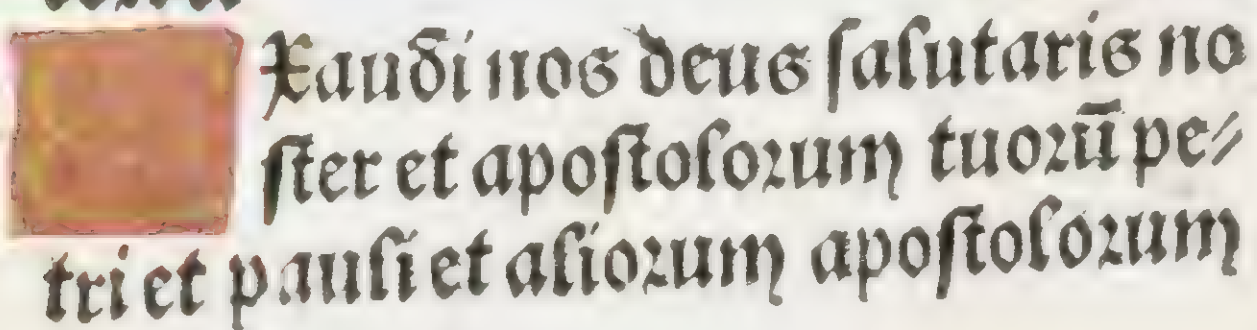 Xaudi nos deus ſalutaris no
ſter et apoſtolorum tuorū pe⸗
tri et pauli et aliorum apoſtolorum